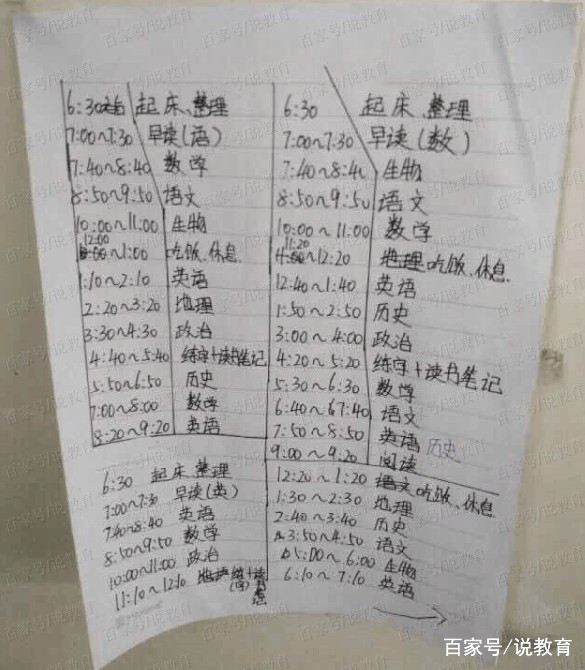 6:30 起床、整理
7:00~7:30 早读(语)
7:40~8:40 数学
8:50~9:50 语文
10:00~11:00 生物
12:00~1:00 吃饭、休息
1:10~2:10 英语
2:20~3:20 地理
3:30~4:30 政治
4:40~5:40 练字+读书笔记
5:50~6:50 历史
7:00~8:00 数学
8:20~9:20 英语
6:30 起床、整理
7:00~7:30 早读(数)
7:40~8:40 生物
8:50~9:50 语文
10:00~11:00 数学
11:20~12:20 地理 吃饭、休息
12:40~1:40 英语
1:50~2:50 历史
3:00~4:00 政治
4:20~5:20 练字+读书笔记
5:30~6:30 数学
6:40~7:40 语文
7:50~8:50 英语 历史
9:00~9:20 阅读
6:30 起床、整理
7:00~7:30 早读(英)
7:40~8:40 英语
8:50~9:50 数学
10:00~11:00 政治
11:10~12:10
12:20~1:20 语文 吃饭、休息
1:30~2:30 地理
2:40~3:40 历史
3:50~4:50 语文
5:00~6:00 生物
6:10~7:10 英语
百家号/说教育